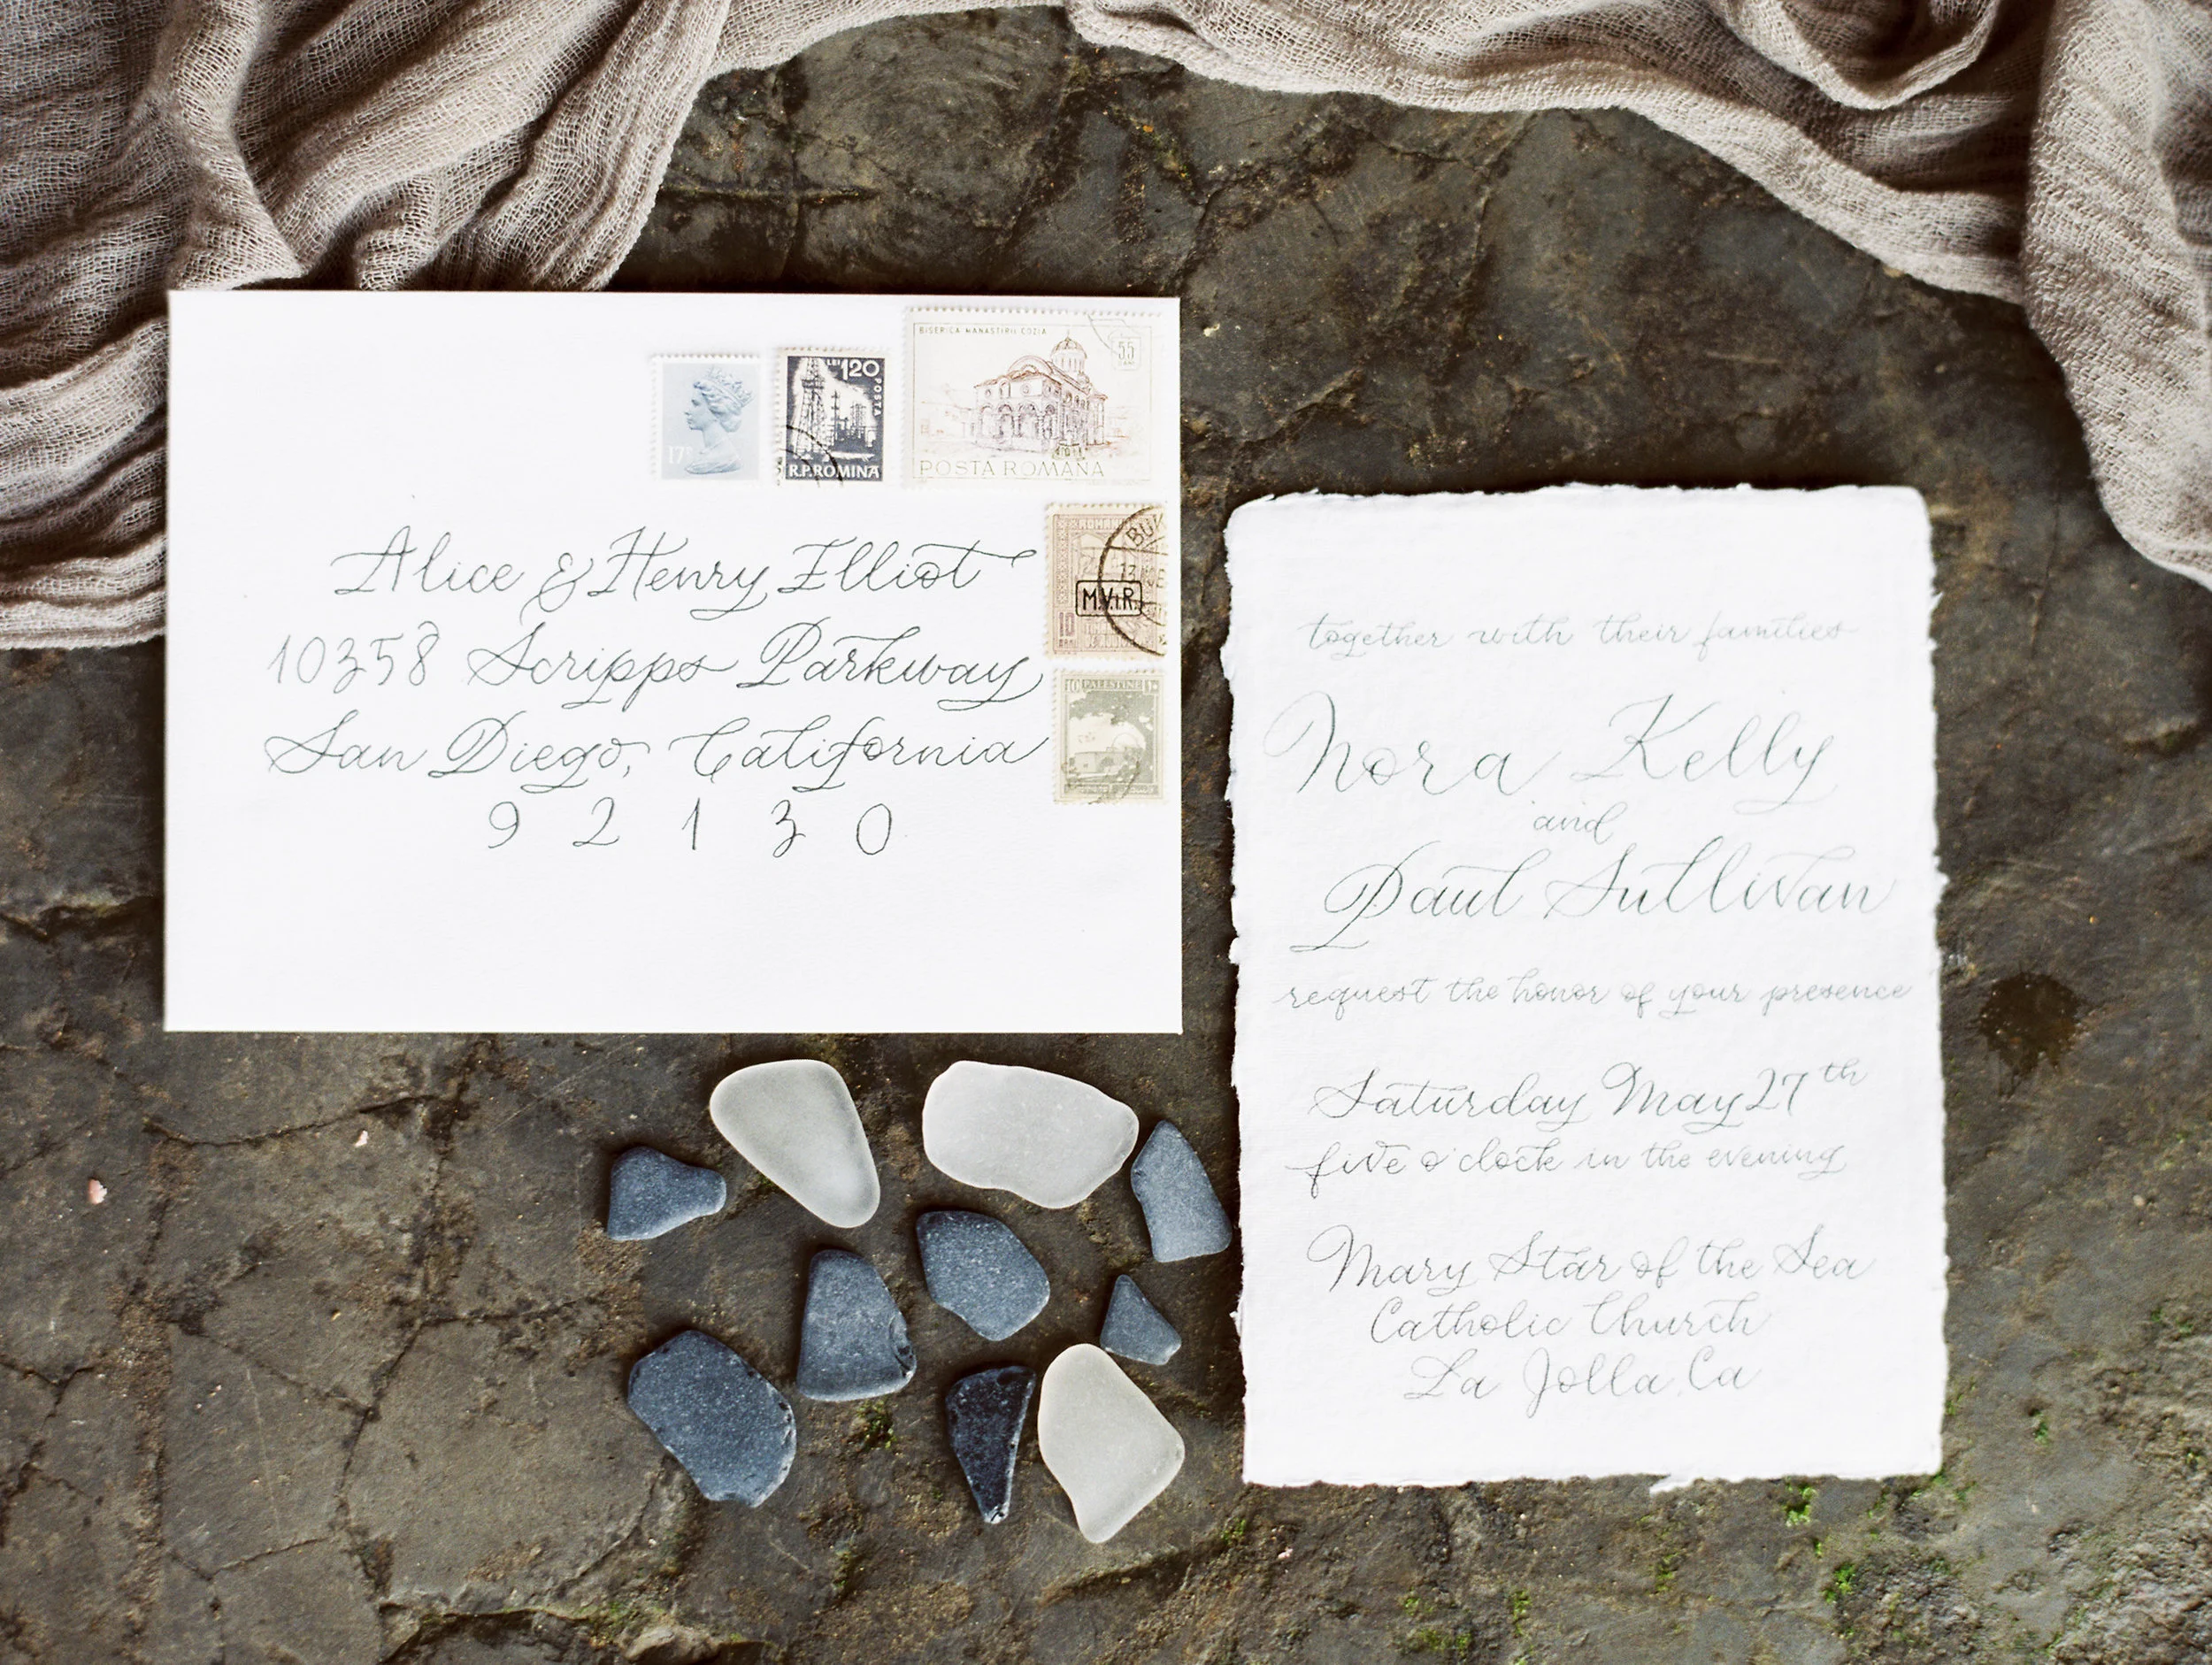 BISERICA MANASTIRII COZIA
55
17P
LEI 1.20
POSTA
R.P.ROMINA
POSTA ROMANA
Alice & Henry Elliot
10358 Scripps Parkway
San Diego, California
9 2 1 3 0
M.V.i.R.
10
10 PALESTINE
together with their families
Nora Kelly
and
Paul Sullivan
request the honor of your presence
Saturday May 27th
five o'clock in the evening
Mary Star of the Sea
Catholic Church
La Jolla, Ca